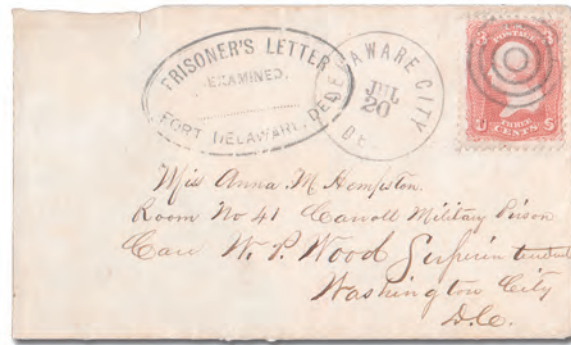 PRISONER'S LETTER
EXAMINED.
FORT DELAWARE, DEL
DELAWARE CITY
JUL
20
DE
U.S. POSTAGE
3 3
U S
THREE
CENTS
Miss Anna. M Hempston.
Room No 41 Carroll Military Prison
Care W. P. Wood Superintendent
Washington City
D.C.